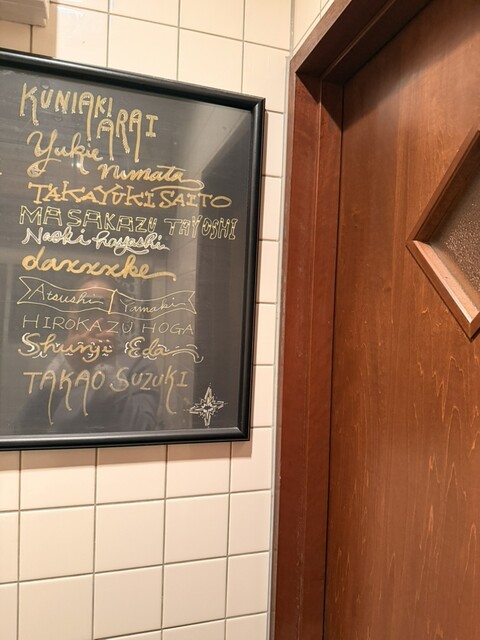 KUNIAKI
ARAI
Yukie
numata
TAKAYUKI SAITO
MASAKAZU TAYOSHI
Naoki hayashi
daxxxke
Atsushi Yamaki
HIROKAZU HOGA
Shunji Eda
TAKAO SUZUKI